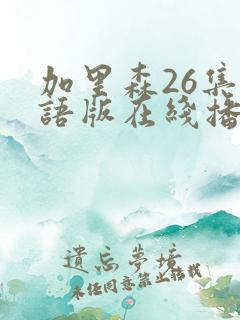 加里森26集
語版在綫播
遺忘夢境
未经同意禁止转载